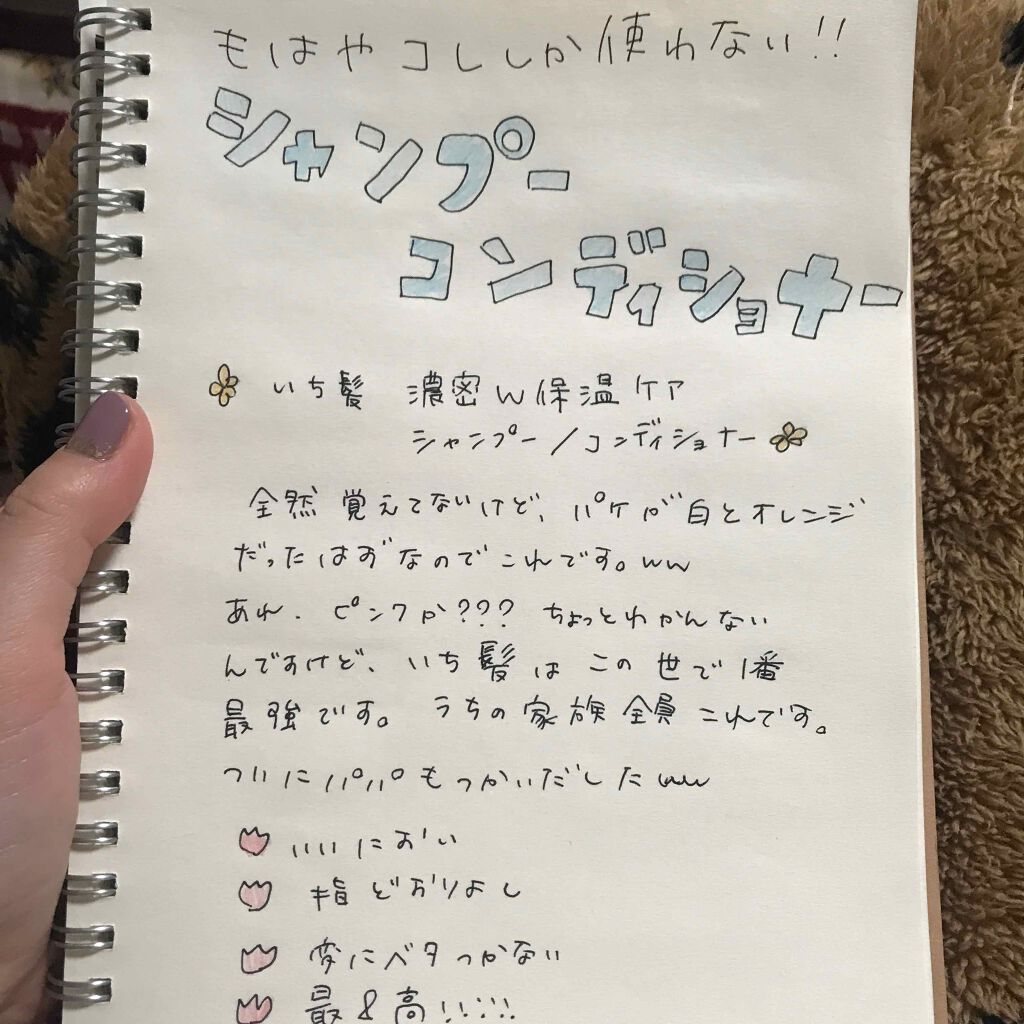 もはやコレしか使わない!!
シャンプー
コンディショナー
いち髪 濃密W保温ケア
シャンプー/コンディショナー
全然覚えてないけど、パケが白とオレンジ
だったはずなのでこれです。ww
あれ、ピンクか???ちょっとわかんない
んですけど、いち髪はこの世で1番
最強です。うちの家族全員これです。
ついにパパもつかいだしたww
いいにおい
指どおりよし
変にベタつかない
最&高!!!!!